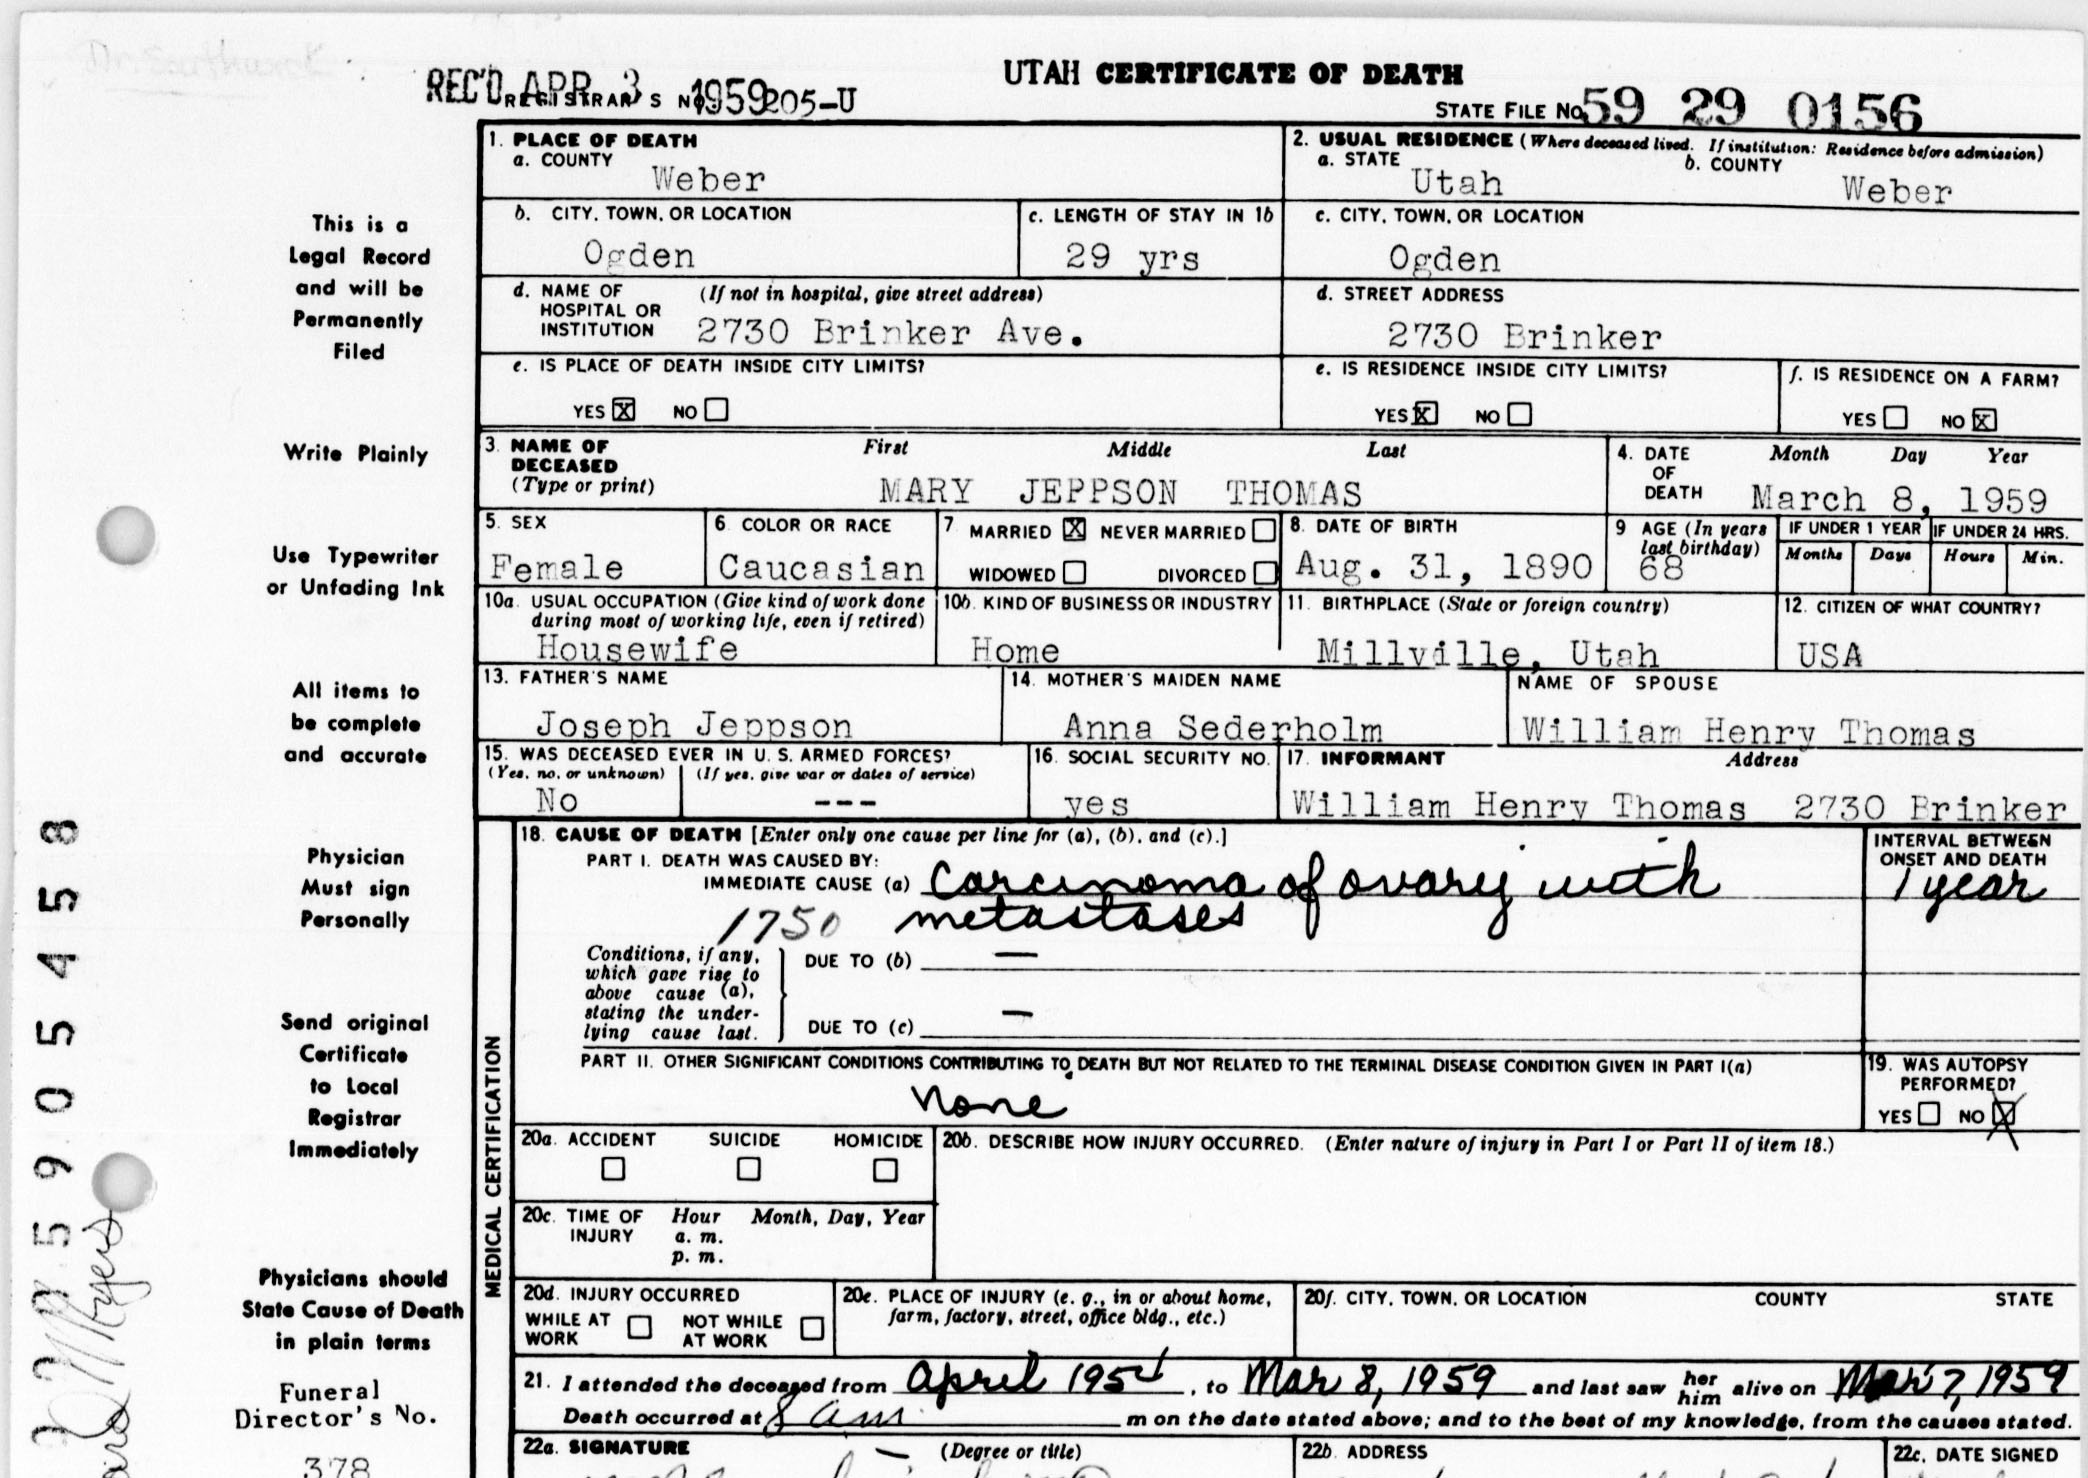 UTAH CERTIFICATE OF DEATH
REC'D APR 3 1959
REGISTRAR'S No. 205-U
STATE FILE No. 59 29 0156
1. PLACE OF DEATH
a. COUNTY
Weber
2. USUAL RESIDENCE (Where deceased lived. If institution: Residence before admission)
a. STATE
Utah
b. COUNTY
Weber
b. CITY, TOWN, OR LOCATION
Ogden
c. LENGTH OF STAY IN 1b
29 yrs
c. CITY, TOWN, OR LOCATION
Ogden
d. NAME OF HOSPITAL OR INSTITUTION
(If not in hospital, give street address)
2730 Brinker Ave.
d. STREET ADDRESS
2730 Brinker
e. IS PLACE OF DEATH INSIDE CITY LIMITS?
YES X NO
e. IS RESIDENCE INSIDE CITY LIMITS?
YES X NO
f. IS RESIDENCE ON A FARM?
YES NO X
3. NAME OF DECEASED
(Type or print)
First Middle Last
MARY JEPPSON THOMAS
4. DATE OF DEATH
Month Day Year
March 8, 1959
5. SEX
Female
6. COLOR OR RACE
Caucasian
7. MARRIED X NEVER MARRIED
WIDOWED DIVORCED
8. DATE OF BIRTH
Aug. 31, 1890
9 AGE (In years last birthday)
68
IF UNDER 1 YEAR
Months Days
IF UNDER 24 HRS.
Hours Min.
10a. USUAL OCCUPATION (Give kind of work done during most of working life, even if retired)
Housewife
10b. KIND OF BUSINESS OR INDUSTRY
Home
11. BIRTHPLACE (State or foreign country)
Millville, Utah
12. CITIZEN OF WHAT COUNTRY?
USA
13. FATHER'S NAME
Joseph Jeppson
14. MOTHER'S MAIDEN NAME
Anna Sederholm
NAME OF SPOUSE
William Henry Thomas
15. WAS DECEASED EVER IN U. S. ARMED FORCES?
(Yes, no, or unknown) (If yes, give war or dates of service)
No ---
16. SOCIAL SECURITY NO.
yes
17. INFORMANT Address
William Henry Thomas 2730 Brinker
MEDICAL CERTIFICATION
18. CAUSE OF DEATH [Enter only one cause per line for (a), (b), and (c).]
PART I. DEATH WAS CAUSED BY:
IMMEDIATE CAUSE (a) Carcinoma of ovary with
1750 metastases
INTERVAL BETWEEN ONSET AND DEATH
1 year
Conditions, if any, which gave rise to above cause (a), stating the underlying cause last.
DUE TO (b) —
DUE TO (c) —
PART II. OTHER SIGNIFICANT CONDITIONS CONTRIBUTING TO DEATH BUT NOT RELATED TO THE TERMINAL DISEASE CONDITION GIVEN IN PART I(a)
None
19. WAS AUTOPSY PERFORMED?
YES NO X
20a. ACCIDENT SUICIDE HOMICIDE
20b. DESCRIBE HOW INJURY OCCURRED. (Enter nature of injury in Part I or Part II of item 18.)
20c. TIME OF INJURY
Hour Month, Day, Year
a. m.
p. m.
20d. INJURY OCCURRED
WHILE AT WORK NOT WHILE AT WORK
20e. PLACE OF INJURY (e. g., in or about home, farm, factory, street, office bldg., etc.)
20f. CITY, TOWN, OR LOCATION COUNTY STATE
21. I attended the deceased from April 195 , to Mar 8, 1959 and last saw her him alive on Mar 7, 1959
Death occurred at 8 am m on the date stated above; and to the best of my knowledge, from the causes stated.
22a. SIGNATURE (Degree or title)
22b. ADDRESS
22c. DATE SIGNED
This is a
Legal Record
and will be
Permanently
Filed
Write Plainly
Use Typewriter
or Unfading Ink
All items to
be complete
and accurate
Physician
Must sign
Personally
Send original
Certificate
to Local
Registrar
Immediately
Physicians should
State Cause of Death
in plain terms
Funeral
Director's No.
378
5905458
Myers